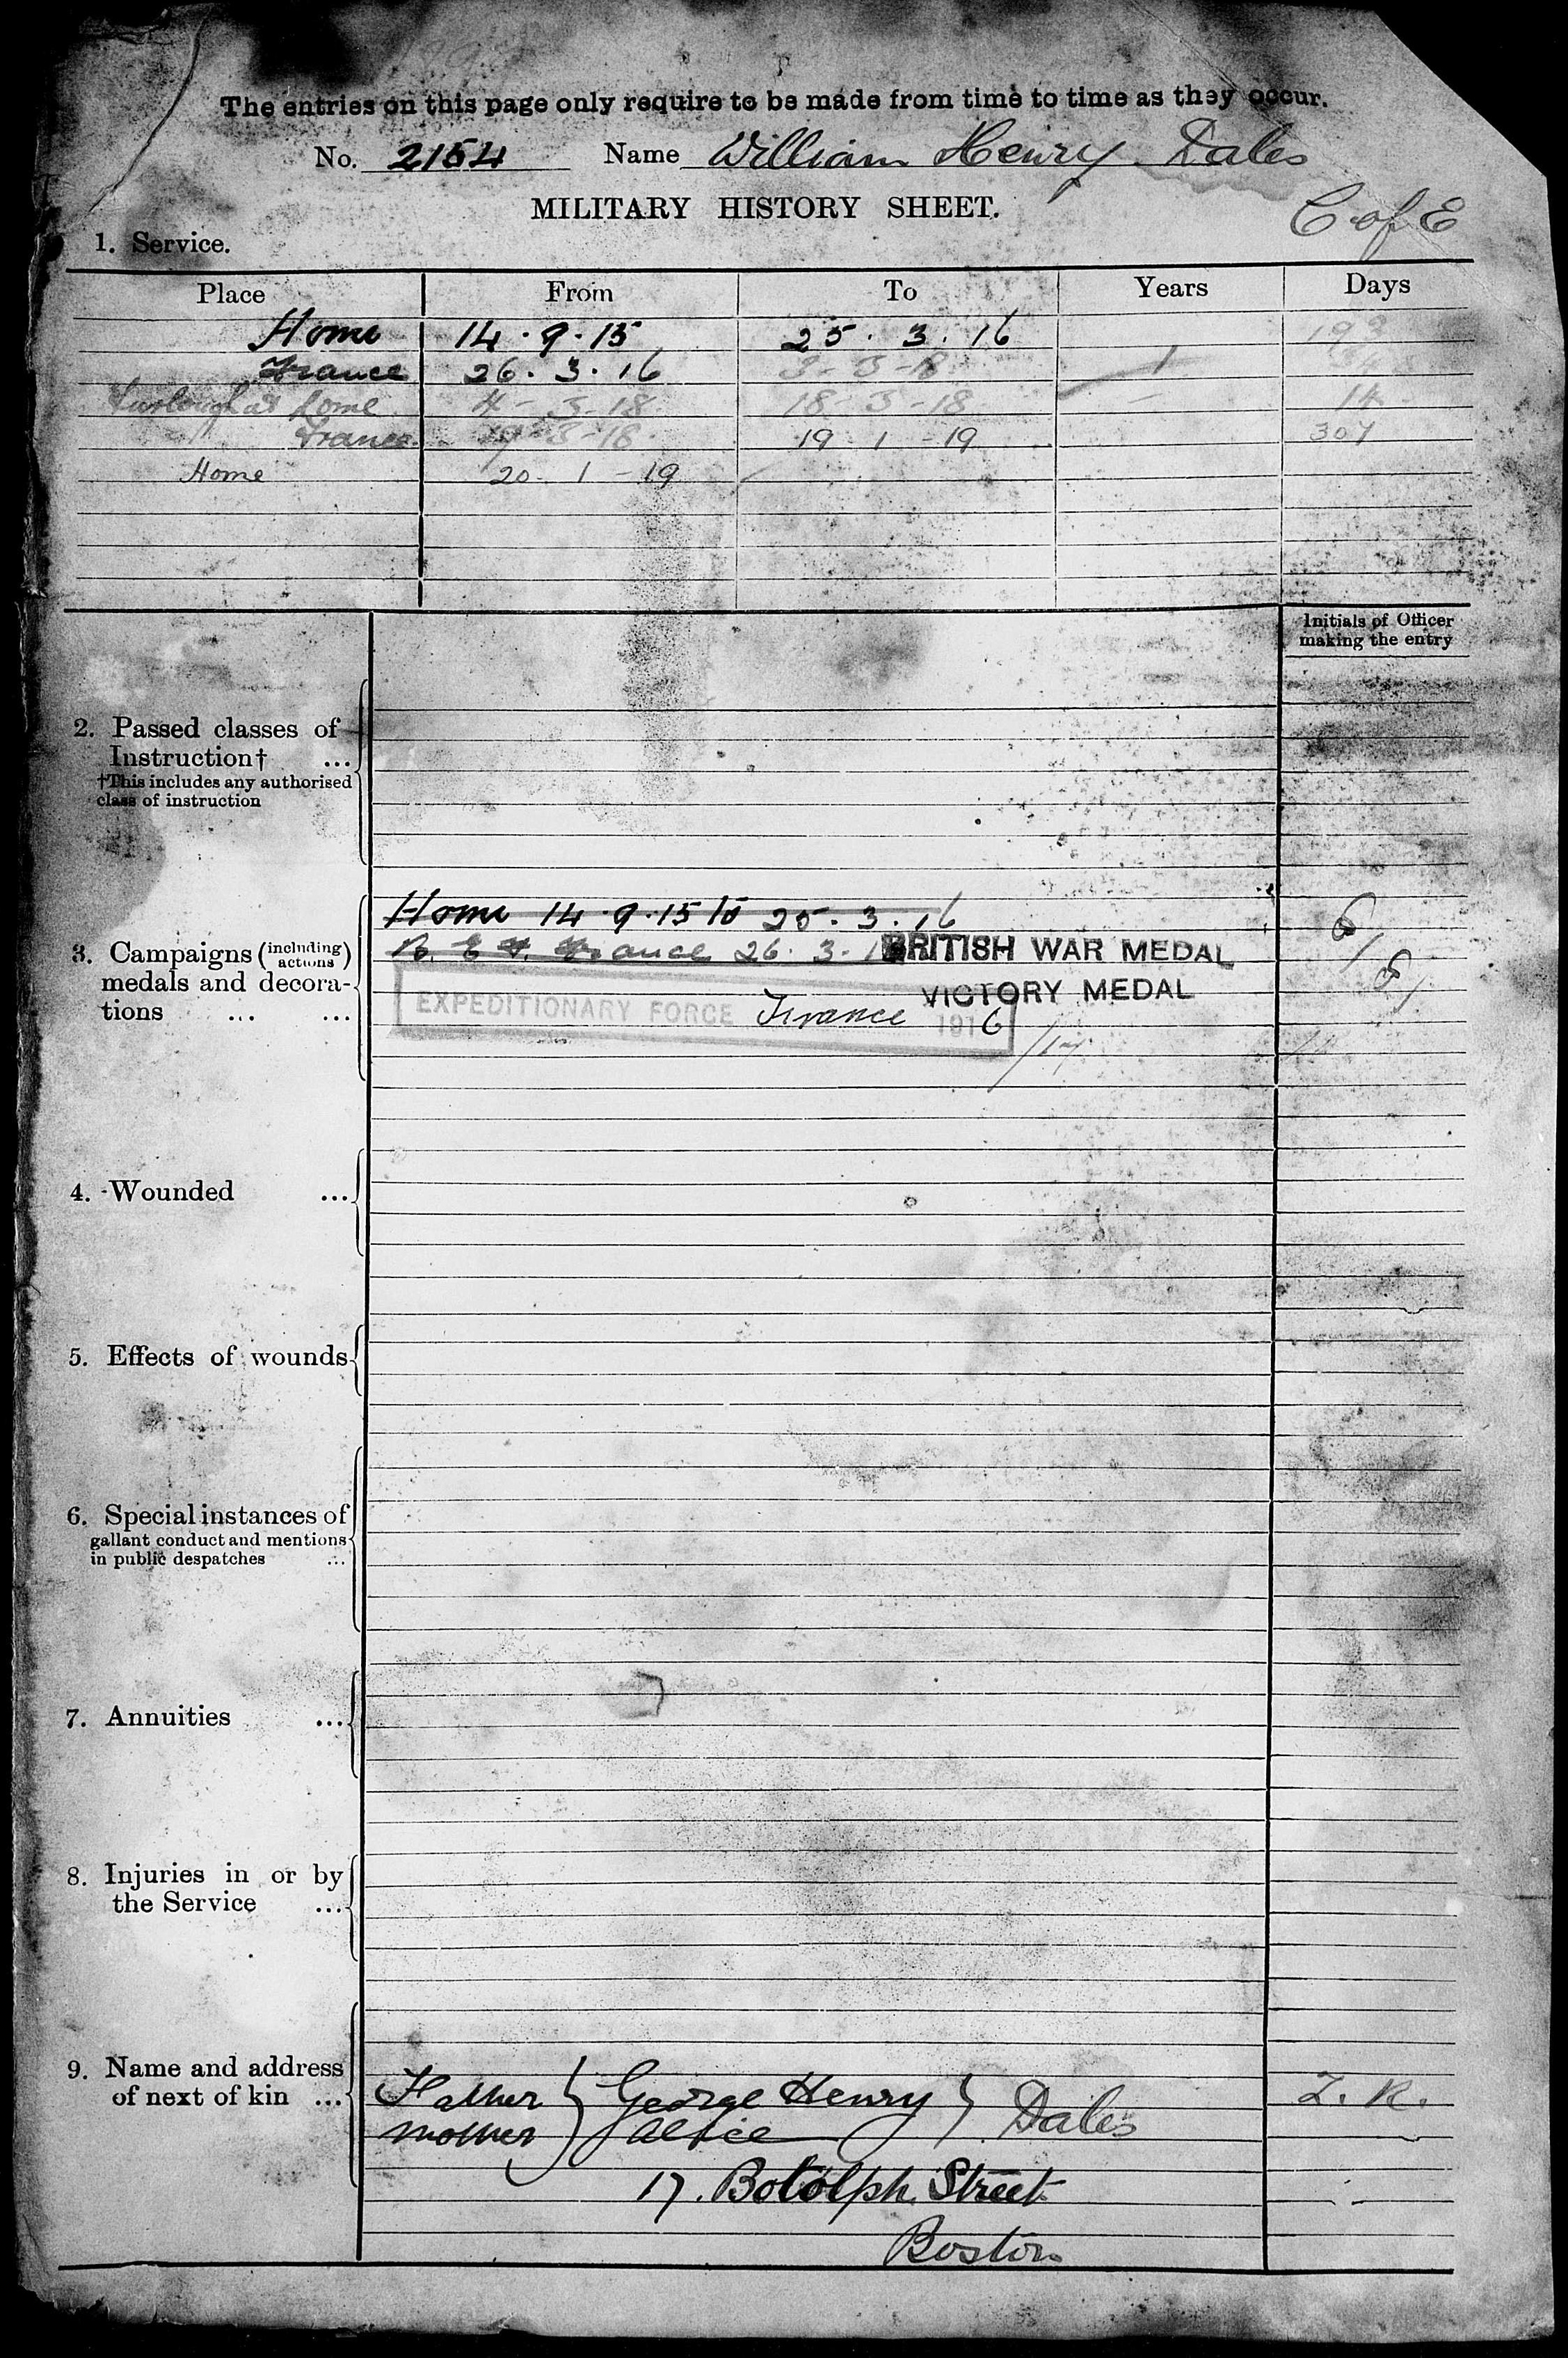 The entries on this page only require to be made from time to time as they occur.
No. 2154 Name William Henry Dales
MILITARY HISTORY SHEET.
C of E
1. Service.
Place From To Years Days
Home 14.9.15 25.3.16 193
France 26.3.16 3-3-18 1
Furlough at home 4-3-18 18-3-18 - 14
France 19-3-18 19-1-19 307
Home 20-1-19
Initials of Officer
making the entry
2. Passed classes of
Instruction† ...
†This includes any authorised
class of instruction
Home 14.9.15 to 25.3.16
3. Campaigns (including actions)
medals and decora-
tions ... ...
B.E.F. France 26.3.1 BRITISH WAR MEDAL
VICTORY MEDAL
EXPEDITIONARY FORCE France 1916
/17
4. Wounded ...
5. Effects of wounds
6. Special instances of
gallant conduct and mentions
in public despatches ...
7. Annuities ...
8. Injuries in or by
the Service ...
9. Name and address
of next of kin ...
Father George Henry Dales
Mother Alice
17. Botolph Street
Boston